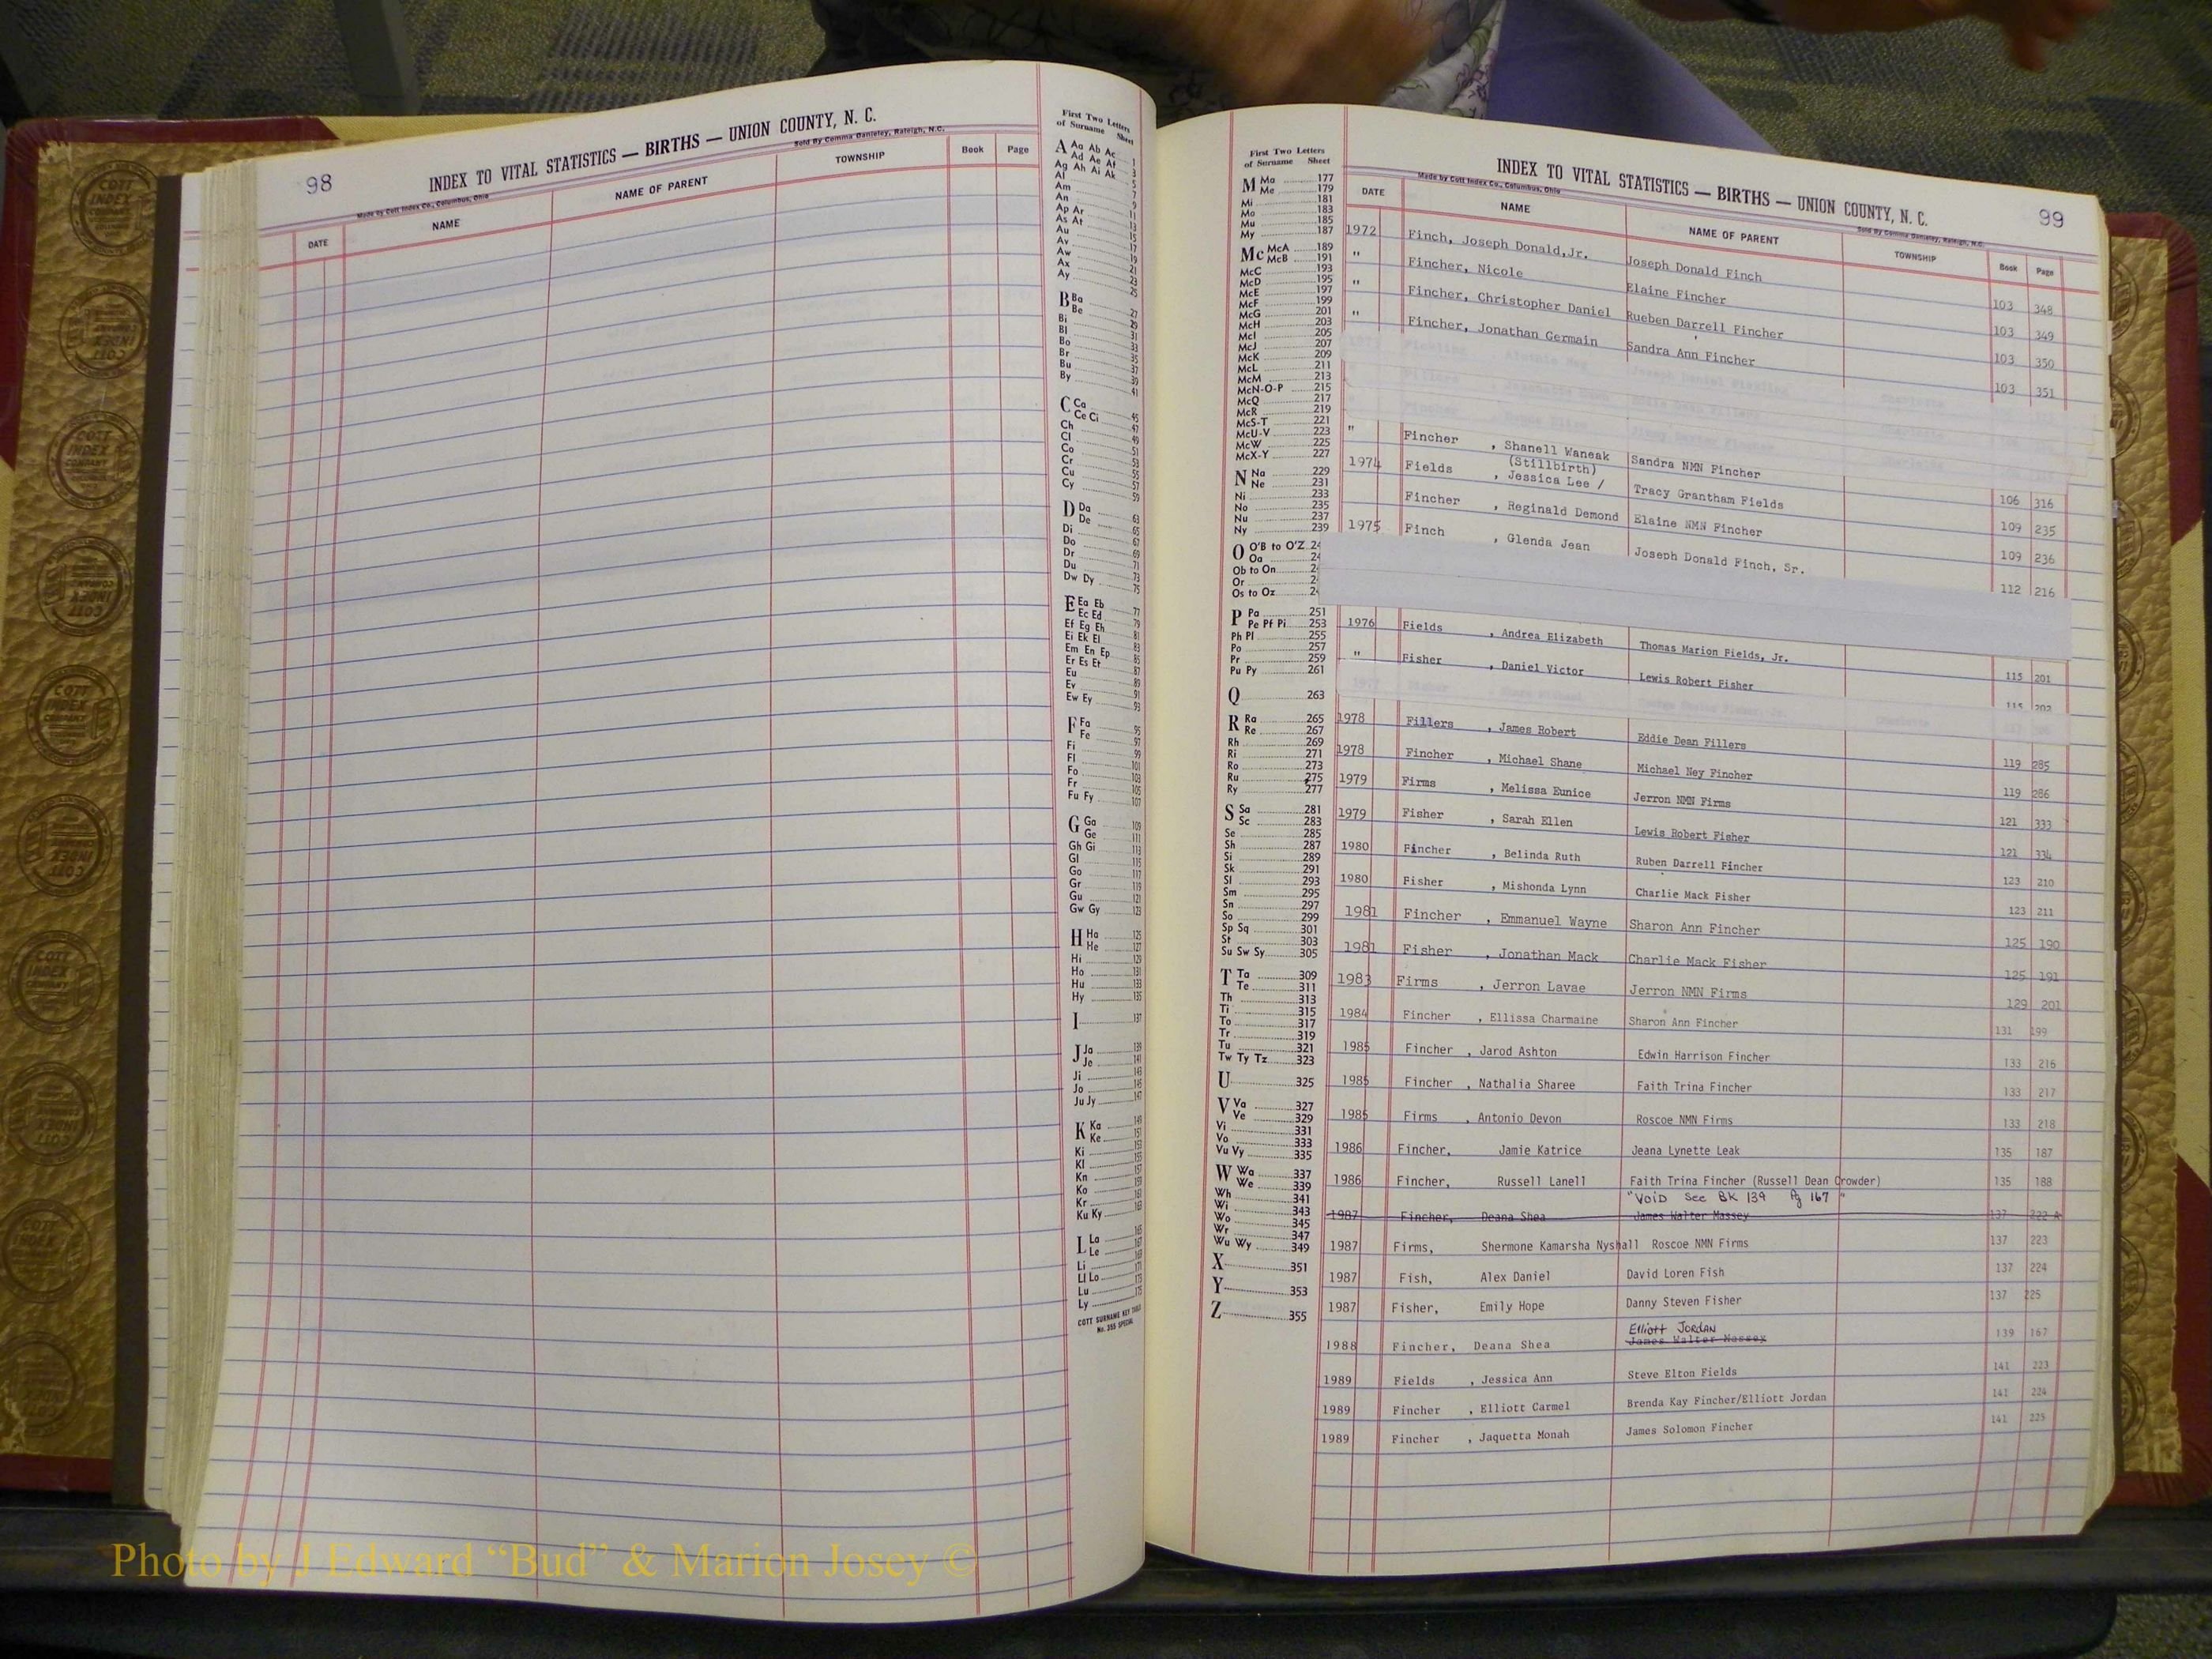 98
INDEX TO VITAL STATISTICS — BIRTHS — UNION COUNTY, N. C.
Made by Cott Index Co., Columbus, Ohio
Sold By Comma Danieley, Raleigh, N.C.
DATE NAME NAME OF PARENT TOWNSHIP Book Page
First Two Letters
of Surname Sheet
A Aa Ab Ac 1
Ad Ae Af 3
Ag Ah Ai Ak 5
Al 7
Am 9
An 11
Ap Ar 13
As At 15
Au 17
Av 19
Aw 21
Ax 23
Ay 25
B Ba 27
Be 29
Bi 31
Bl 33
Bo 35
Br 37
Bu 39
By 41
C Ca 45
Ce Ci 47
Ch 49
Cl 51
Co 53
Cr 55
Cu 57
Cy 59
D Da 63
De 65
Di 67
Do 69
Dr 71
Du 73
Dw Dy 75
E Ea Eb 77
Ec Ed 79
Ef Eg Eh 81
Ei Ek El 83
Em En Ep 85
Er Es Et 87
Eu 89
Ev 91
Ew Ey 93
F Fa 95
Fe 97
Fi 99
Fl 101
Fo 103
Fr 105
Fu Fy 107
G Ga 109
Ge 111
Gh Gi 113
Gl 115
Go 117
Gr 119
Gu 121
Gw Gy 123
H Ha 125
He 127
Hi 129
Ho 131
Hu 133
Hy 135
I 137
J Ja 139
Je 141
Ji 143
Jo 145
Ju Jy 147
K Ka 149
Ke 151
Ki 153
Kl 155
Kn 157
Ko 159
Kr 161
Ku Ky 163
L La 165
Le 167
Li 169
Ll Lo 171
Lu 173
Ly 175
COTT SURNAME KEY TABLE
No. 355 SPECIAL
First Two Letters
of Surname Sheet
M Ma 177
Me 179
Mi 181
Mo 183
Mu 185
My 187
Mc McA 189
McB 191
McC 193
McD 195
McE 197
McF 199
McG 201
McH 203
McI 205
McJ 207
McK 209
McL 211
McM 213
McN-O-P 215
McQ 217
McR 219
McS-T 221
McU-V 223
McW 225
McX-Y 227
N Na 229
Ne 231
Ni 233
No 235
Nu 237
Ny 239
O O'B to O'Z 24
Oa 24
Ob to On 2
Or 2
Os to Oz 24
P Pa 251
Pe Pf Pi 253
Ph Pl 255
Po 257
Pr 259
Pu Py 261
Q 263
R Ra 265
Re 267
Rh 269
Ri 271
Ro 273
Ru 275
Ry 277
S Sa 281
Sc 283
Se 285
Sh 287
Si 289
Sk 291
Sl 293
Sm 295
Sn 297
So 299
Sp Sq 301
St 303
Su Sw Sy 305
T Ta 309
Te 311
Th 313
Ti 315
To 317
Tr 319
Tu 321
Tw Ty Tz 323
U 325
V Va 327
Ve 329
Vi 331
Vo 333
Vu Vy 335
W Wa 337
We 339
Wh 341
Wi 343
Wo 345
Wr 347
Wu Wy 349
X 351
Y 353
Z 355
INDEX TO VITAL STATISTICS — BIRTHS — UNION COUNTY, N. C.
99
Made by Cott Index Co., Columbus, Ohio
Sold By Comma Danieley, Raleigh, N.C.
DATE NAME NAME OF PARENT TOWNSHIP Book Page
1972 Finch, Joseph Donald,Jr. Joseph Donald Finch 103 348
" Fincher, Nicole Elaine Fincher 103 349
" Fincher, Christopher Daniel Rueben Darrell Fincher 103 350
" Fincher, Jonathan Germain Sandra Ann Fincher 103 351
" Fincher , Shanell Waneak Sandra NMN Fincher 106 316
(Stillbirth)
1974 Fields , Jessica Lee / Tracy Grantham Fields 109 235
Fincher , Reginald Demond Elaine NMN Fincher 109 236
1975 Finch , Glenda Jean Joseph Donald Finch, Sr. 112 216
1976 Fields , Andrea Elizabeth Thomas Marion Fields, Jr. 115 201
" Fisher , Daniel Victor Lewis Robert Fisher 115 202
1978 Fillers , James Robert Eddie Dean Fillers 119 285
1978 Fincher , Michael Shane Michael Ney Fincher 119 286
1979 Firms , Melissa Eunice Jerron NMN Firms 121 333
1979 Fisher , Sarah Ellen Lewis Robert Fisher 121 334
1980 Fincher , Belinda Ruth Ruben Darrell Fincher 123 210
1980 Fisher , Mishonda Lynn Charlie Mack Fisher 123 211
1981 Fincher , Emmanuel Wayne Sharon Ann Fincher 125 190
1981 Fisher , Jonathan Mack Charlie Mack Fisher 125 191
1983 Firms , Jerron Lavae Jerron NMN Firms 129 201
1984 Fincher , Ellissa Charmaine Sharon Ann Fincher 131 199
1985 Fincher , Jarod Ashton Edwin Harrison Fincher 133 216
1985 Fincher , Nathalia Sharee Faith Trina Fincher 133 217
1985 Firms , Antonio Devon Roscoe NMN Firms 133 218
1986 Fincher, Jamie Katrice Jeana Lynette Leak 135 187
1986 Fincher, Russell Lanell Faith Trina Fincher (Russell Dean Crowder) 135 188
"VOID See BK 139 Pg 167"
1987 Fincher, Deana Shea James Walter Massey 137 222 A
1987 Firms, Shermone Kamarsha Nyshall Roscoe NMN Firms 137 223
1987 Fish, Alex Daniel David Loren Fish 137 224
1987 Fisher, Emily Hope Danny Steven Fisher 137 225
Elliott JORDAN
1988 Fincher, Deana Shea James Walter Massey 139 167
1989 Fields , Jessica Ann Steve Elton Fields 141 223
1989 Fincher , Elliott Carmel Brenda Kay Fincher/Elliott Jordan 141 224
1989 Fincher , Jaquetta Monah James Solomon Fincher 141 225
Photo by J Edward “Bud” & Marion Josey ©